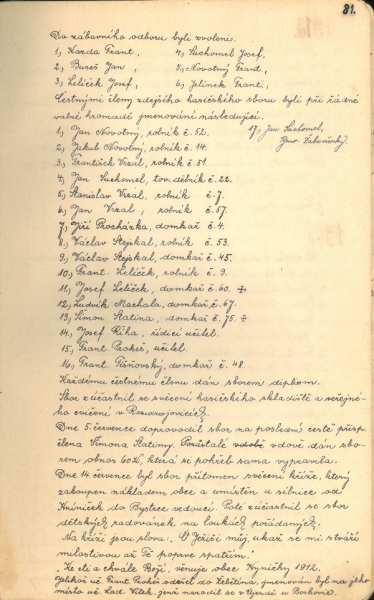 81.
Do zábavního odboru byli zvoleni:
1, Harda Frant., 4, Suchomel Josef,
2, Bureš Jan, 5, Novotný Frant.,
3, Leliček Josef, 6, Jelínek Frant.,
Čestnými členy zdejšího hasičského sboru byli při řádné
valné hromadě jmenováni následující.
1, Jan Novotný, rolník č. 52. 17, Jan Suchomel,
2, Jakub Novotný, rolník č. 14.
3, František Vrzal, rolník č. 51.
4, Jan Suchomel, tov. dělník č. 22.
5, Stanislav Vrzal, rolník č. 7.
6, Jan Vrzal, rolník č. 57.
7, Jiří Procházka, domkař č. 4.
8, Václav Stejskal, rolník č. 53.
9, Václav Stejskal, domkař č. 45.
10, Frant. Leliček, rolník č. 9.
11, Josef Leliček, domkař č. 60. +
12, Ludvík Machala, domkař č. 67.
13, Šimon Slatina, domkař č. 75. +
14, Josef Říha, řídící učitel.
15, Frant Prokeš, učitel.
16, Frant. Tišnovský, domkař č. 48.
Každému čestnému členu dán sborem diplom.
Sbor zúčastnil se svěcení hasičského skladiště a veřejné-
ho cvičení v
Dne 5. července doprovodil sbor na poslední cestě přísp.
člena Šimona Slatiny. Pozůstalé vdobě vdově dán sbo-
rem obnos 60 K, která se pohřeb sama vypravila.
Dne 14. července byl sbor přítomen svěcení kříže, který
zakoupen nákladem obce a umístěn u silnice od
Kníniček do Bystrce vedoucí. Poté zúčastnil se sbor
dětských radovánek na loukách pořádaných.
Na kříži jsou slova: "O Ježíši můj, ukaž se mi tváří
milostivou až Tě poprvé spatřím."
"Ke cti a chvále Boží, věnuje obec Kyničky 1912.
Jelikož uč. Frant Prokeš odešel do Žebětína, jmenován byl na jeho
místo uč. Lad. Vítek, jenž narodil se v Újezdě u Boskovic.